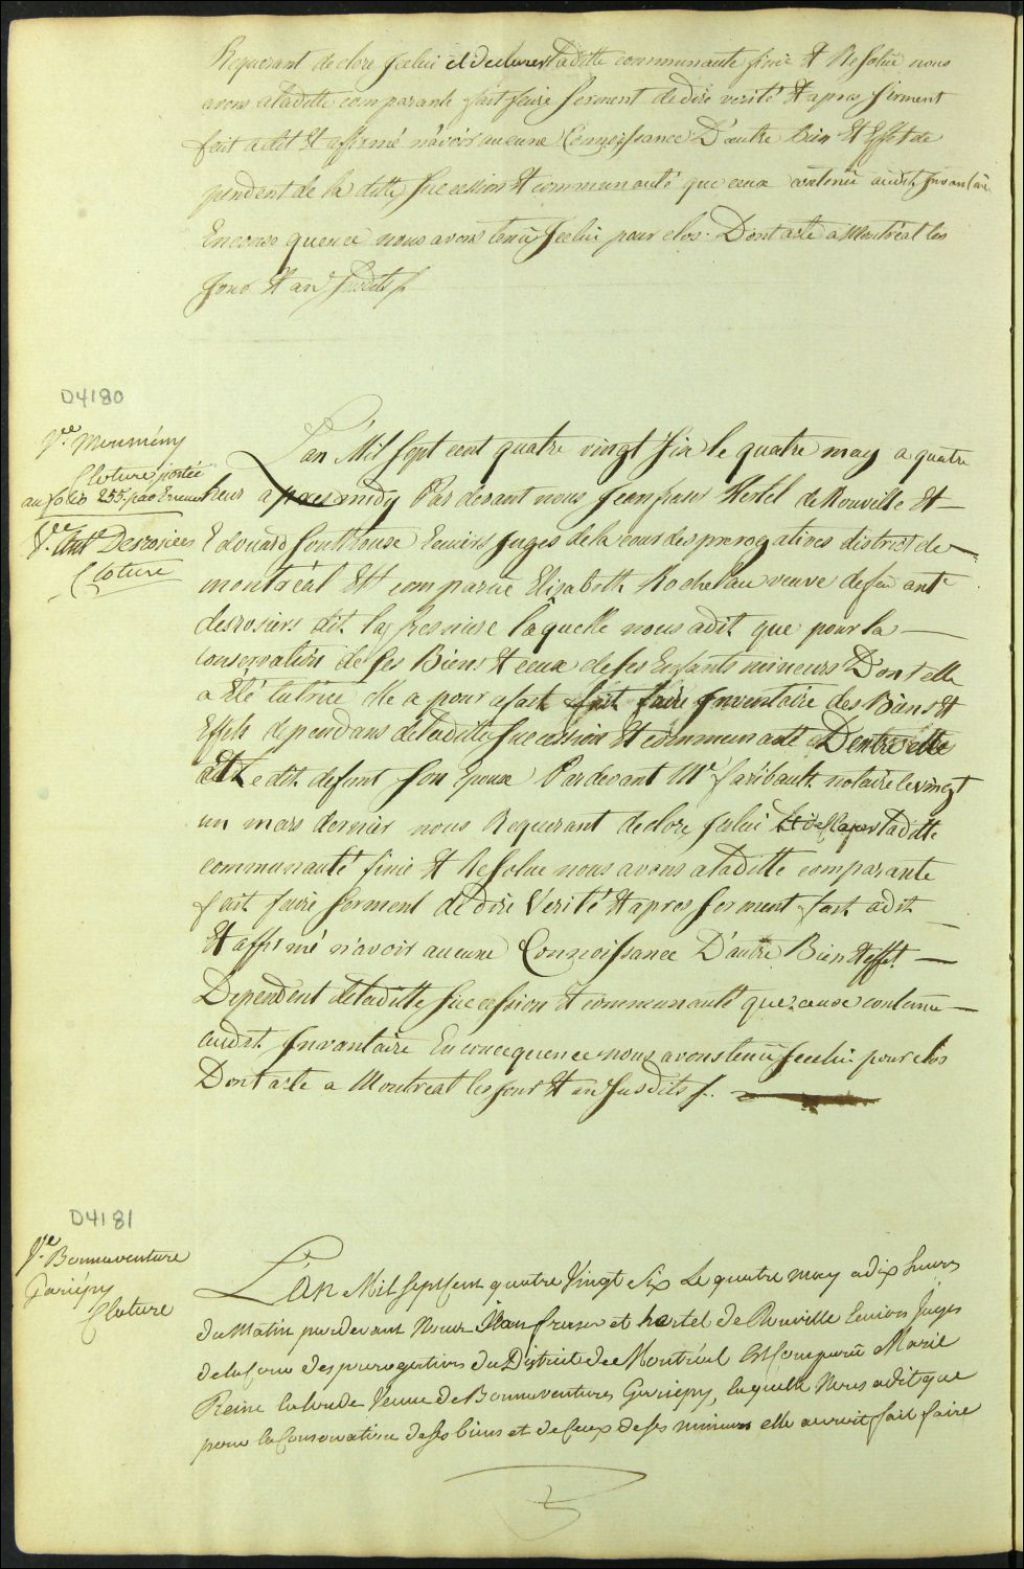 Requerant de clore Jcelui et declarer laditte communauté finie Et Resolüe nous
avons a laditte comparante fait faire serment de dire verité Et apres serment
fait a dit Et affirmé n'avoir aucune Connoissance D'autre Bien Et Effet de
pendent de la ditte Succession Et communauté que ceux contenü audit Jnvantaire
En consequence nous avons tenü Jcelui pour clos. Dont acte a Montréal les
jour Et an susdits /.
D4180
Vee. Meunieny
Cloture portée
au folio 255. par Erreur
Vee. Ante Desrosiers
Cloture
L'an Mil Sept cent quatre vingt six le quatre may a quatre
heur apres midy Par devant nous Jean fraser Hertel de Rouville Et
Edouard Southouse Ecuiers Juges de la cour des prerogatives district de
montréal Est comparüe Elizabeth Rocheleau veuve de feu ante
desrosiers dit lafresniere laquelle nous a dit que pour la
Conservation de ses Biens Et ceux de ses Enfants mineurs D'ont elle
a Eté tutrice elle a pour efait fait faire Jnventaire des Biens Et
Effets dependans de ladditte Succession Et communauté D'entre elle
Et Le dit defunt son Epoux Pardevant Me. faribault notaire le vingt
un mars dernier nous Requerant de clore Jcelui Et declarer ladditte
communauté finie Et Resolue nous avons a laditte comparante
fait faire serment de dire Verité Et apres serment fait a dit
Et affirmé n'avoir aucune Connoissance D'autre Bien Et effet
Dependent de laditte Succession Et communauté que ceux contenü
audit Jnvantaire En concequence nous avons tenü Jcelui pour clos
Dont acte a Montreal les jour Et an susdits /.
D4181
Ve. Bonnaventure
Gariépy
Cloture
L'an Mil Sept Cent quatre Vingt Six Le quatre may a dix heures
du Matin pardevant Nous Jean fraser et hertel de Rouville Ecuiers Juges
de la Cour des prerogatives du District de Montréal Est Comparü Marie
Reine Veuve de Bonnaventure Gariepy, laquelle Nous a dit que
pour la Conservation de ses biens et de Ceux de ses mineurs elle auroit fait faire